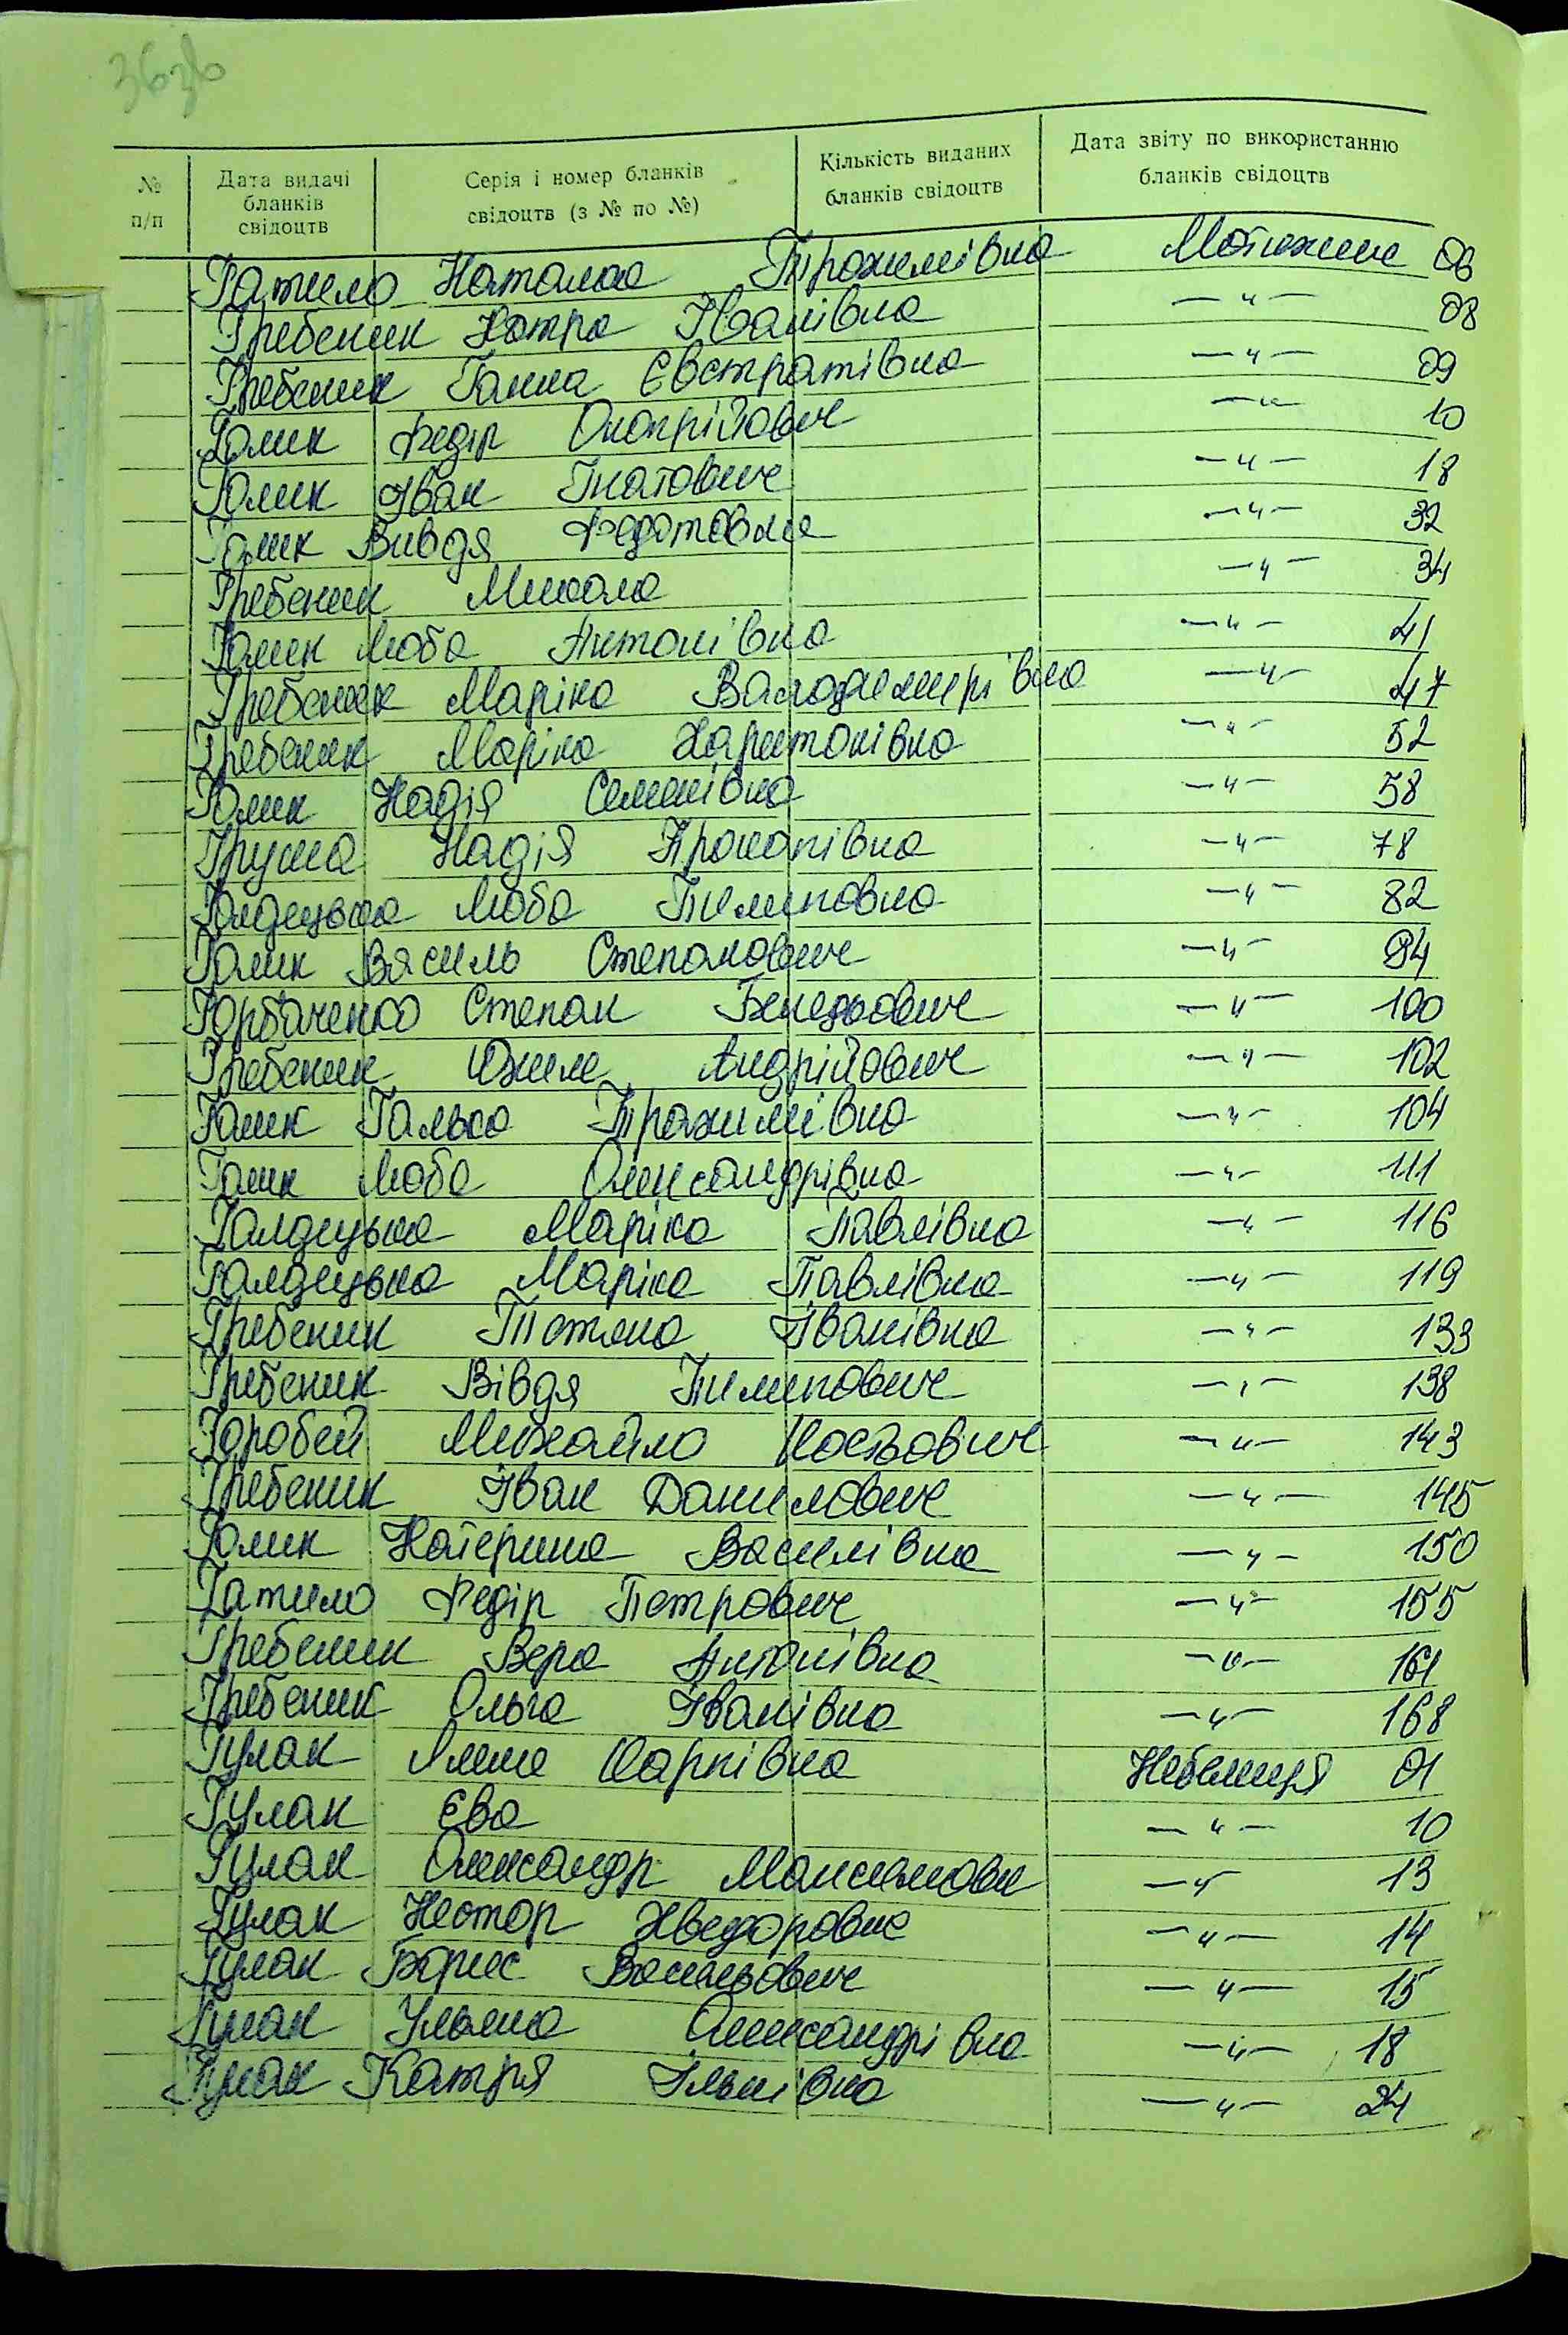 363б
№ п/п Дата видачі бланків свідоцтв Серія і номер бланків свідоцтв (з № по №) Кількість виданих бланків свідоцтв Дата звіту по використанню бланків свідоцтв
Гатило Наталка Трохимівна Мотижине 06
Гребеник Катря Іванівна —〃— 08
Гребеник Ганна Євстратівна —〃— 09
Голик Федір Оноприйович —〃— 10
Голик Іван Гнатович —〃— 18
Голик Вивдя Федотовна —〃— 32
Гребеник Микола —〃— 34
Голик Люба Антонівна —〃— 41
Гребеник Маріка Валодимирівна —〃— 47
Гребеник Маріка Харитонівна —〃— 52
Голик Надія Семенівна —〃— 58
Груша Надія Прокопівна —〃— 78
Галдецька Люба Пилиповна —〃— 82
Голик Василь Степанович —〃— 94
Горбаченко Степан —〃— 100
Гребеник Юхим Андрійович —〃— 102
Голик Галька Трохимівна —〃— 104
Голик Люба Олександрівна —〃— 111
Галдецька Маріка Павлівна —〃— 116
Галдецька Маріка Павлівна —〃— 119
Гребеник Тетяна Іванівна —〃— 133
Гребеник Вівдя Пилипович —〃— 138
Горобей Михайло Костьович —〃— 143
Гребеник Іван Данилович —〃— 145
Голик Катерина Василівна —〃— 150
Гатило Федір Петрович —〃— 155
Гребеник Вера Антонівна —〃— 161
Гребеник Ольга Іванівна —〃— 168
Гулак Карпівна Небелиця 01
Гулак Єва —〃— 10
Гулак Олександр Максимови —〃— 13
Гулак Нестор Хведорович —〃— 14
Гулак Борис Васильович —〃— 15
Гулак Уляна Олександрівна —〃— 18
Гулак Катря Ільківна —〃— 24